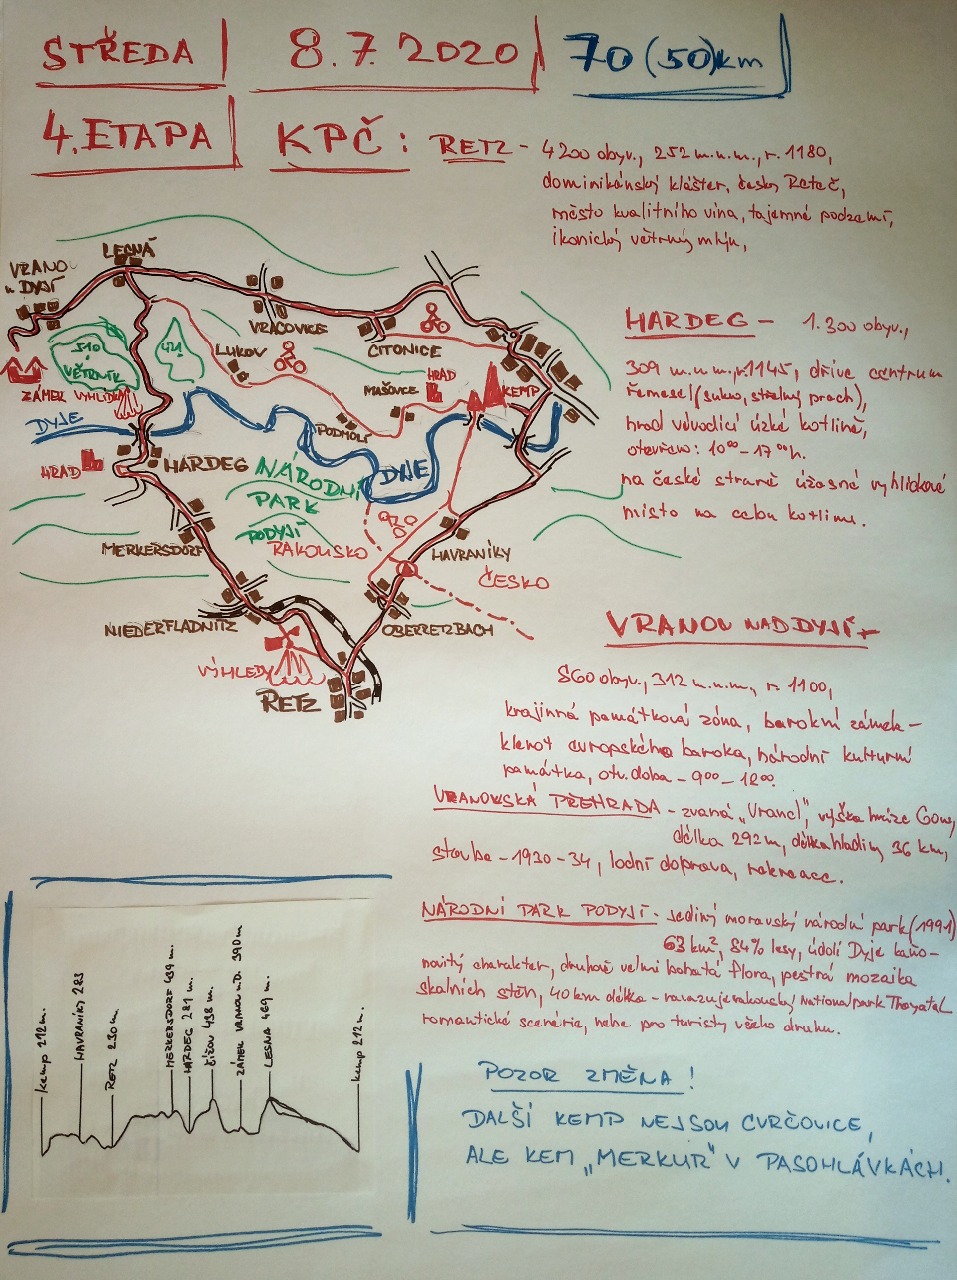 STŘEDA 8.7.2020 70 (50) km
4. ETAPA KPČ: RETZ - 4200 obyv., 252 m.n.m., r. 1180,
dominikánský klášter, česky Reteč,
město kvalitního vína, tajemné podzemí,
ikonický větrný mlýn,
LESNÁ
VRANOV
n DYJÍ
VRACOVICE
CITONICE
LUKOV
510
VĚTRNÍK
421
ZÁMEK
VYHLÍDKA
MAŠOVICE
HRAD
KEMP
DYJE
PODMOLÍ
HRAD
HARDEG
NÁRODNÍ
PARK
PODYJÍ
DNE
RAKOUSKO
MERKERSDORF
HAVRANÍKY
ČESKO
NIEDERFLADNITZ
OBERRETZBACH
VÝHLEDY
RETZ
HARDEG - 1.300 obyv.,
309 m.n.m., r. 1145, dříve centrum
řemesel (sukno, střelný prach),
hrad vévodící úzké kotlině,
otevřeno: 10⁰⁰ - 17⁰⁰ h.
na české straně úžasné vyhlídkové
místo na celou kotlinu.
VRANOV NAD DYJÍ -
860 obyv., 312 m.n.m., r. 1100,
krajinná památková zóna, barokní zámek -
klenot evropského baroka, národní kulturní
památka, otv. doba - 9⁰⁰ - 18⁰⁰
VRANOVSKÁ PŘEHRADA - zvaná "Vrancl", výška hráze 60m,
délka 292 m, délka hladiny 36 km,
stavba - 1930 - 34, lodní doprava, rekreace.
NÁRODNÍ PARK PODYJÍ - jediný moravský národní park (1991)
63 km², 84% lesy, údolí Dyje kaňo-
novitý charakter, druhově velmi bohatá flora, pestrá mozaika
skalních stěn, 40 km délka - navazuje rakouský Nationalpark Thayatal
romantické scenérie, nebe pro turisty všeho druhu.
kemp 212 m.
HAVRANÍKY 283
RETZ 250 m.
MERKERSDORF 439 m.
HARDEG 281 m.
ČÍŽOV 438 m.
ZÁMEK VRANOV n.D. 390 m
LESNÁ 469 m.
kemp 212 m.
POZOR ZMĚNA!
DALŠÍ KEMP NEJSOU CVRČOVICE,
ALE KEM "MERKUR" V PASOHLÁVKÁCH.